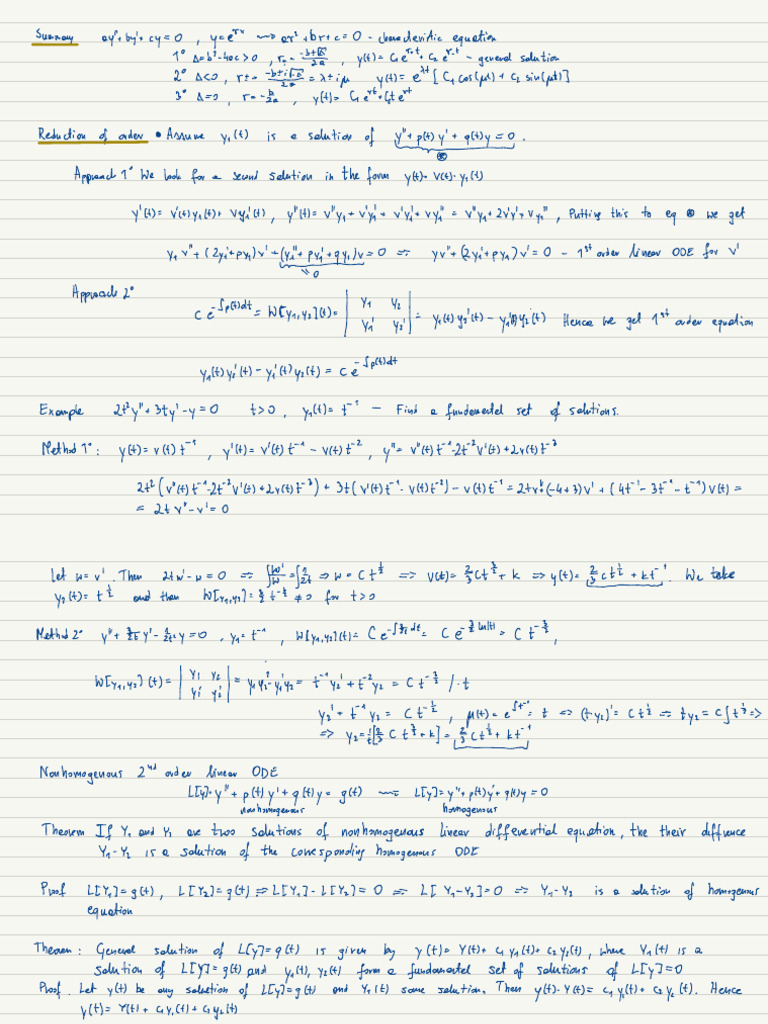 Summary ay''+by'+cy=0 , y=e^{rx} ⇝ ar²+br+c=0 - characteristic equation
1° Δ=b²-4ac>0 , r±=(-b±√Δ)/2a , y(t)=C₁e^{r₊t}+C₂e^{r₋t} - general solution
2° Δ<0, r±=(-b±i√-Δ)/2a=λ±iμ y(t)=e^{λt}[C₁cos(μt)+C₂ sin(μt)]
3° Δ=0, r=-b/2a , y(t)=C₁e^{rt}+C₂te^{rt}
Reduction of order • Assume y₁(t) is a solution of y''+p(t)y'+q(t)y=0 .
⊛
Approach 1° We look for a second solution in the form y(t)=v(t)·y₁(t)
y'(t)=v'(t)y₁(t)+vy₁'(t), y''(t)=v''y₁+v'y₁'+v'y₁'+vy₁''=v''y₁+2v'y₁'+vy₁'', Putting this to eq ⊛ we get
y₁v''+(2y₁'+py₁)v'+(y₁''+py₁'+qy₁)v=0 ⇒ yv''+(2y₁'+py₁)v'=0 - 1st order linear ODE for v'
=0
Approach 2°
Ce^{-∫p(t)dt}=W[y₁,y₂](t)=|y₁ y₂; y₁' y₂'|=y₁(t)y₂'(t)-y₁'(t)y₂(t) Hence we get 1st order equation
y₁(t)y₂'(t)-y₁'(t)y₂(t)=Ce^{-∫p(t)dt}
Example 2t²y''+3ty'-y=0 t>0 , y₁(t)=t⁻¹ - Find a fundamental set of solutions.
Method 1°: y(t)=v(t)t⁻¹ , y'(t)=v'(t)t⁻¹-v(t)t⁻², y''=v''(t)t⁻¹-2t⁻²v'(t)+2v(t)t⁻³
2t²(v''(t)t⁻¹-2t⁻²v'(t)+2v(t)t⁻³)+3t(v'(t)t⁻¹-v(t)t⁻²)-v(t)t⁻¹=2tv''+(-4+3)v'+(4t⁻¹-3t⁻¹-t⁻¹)v(t)=
=2tv''-v'=0
Let w=v'. Then 2tw'-w=0 ⇒ ∫w'/w=∫1/2t ⇒ w=Ct^{1/2} ⇒ v(t)=2/3Ct^{3/2}+k ⇒ y(t)=2/3ct^{1/2}+kt⁻¹. We take
y₂(t)=t^{1/2} and then W[y₁,y₂]=3/2t^{-3/2}≠0 for t>0
Method 2° y''+3/2t y'-1/2t² y=0 , y₁=t⁻¹ , W[y₁,y₂](t)=Ce^{-∫3/2t dt}=Ce^{-3/2 ln(t)}=Ct^{-3/2},
W[y₁,y₂](t)=|y₁ y₂; y₁' y₂'|=y₁y₂'-y₁'y₂=t⁻¹y₂'+t⁻²y₂=Ct^{-3/2} /·t
y₂'+t⁻¹y₂=Ct^{-1/2} , μ(t)=e^{∫t⁻¹}=t ⇒ (ty₂)'=Ct^{1/2} ⇒ ty₂=C∫t^{1/2} ⇒
⇒ y₂=1/t[2/3Ct^{3/2}+k]=2/3Ct^{1/2}+kt⁻¹
Nonhomogenous 2nd order linear ODE
L[y]=y''+p(t)y'+q(t)y=g(t) ⇝ L[y]=y''+p(t)y'+q(t)y=0
nonhomogenous homogenous
Theorem If Y₁ and Y₂ are two solutions of nonhomogenous linear differential equation, the their diffrence
Y₁-Y₂ is a solution of the corresponding homogenous ODE
Proof L[Y₁]=g(t), L[Y₂]=g(t) ⇒ L[Y₁]-L[Y₂]=0 ⇒ L[Y₁-Y₂]=0 ⇒ Y₁-Y₂ is a solution of homogenous
equation
Theorem: General solution of L[y]=g(t) is given by y(t)=Y(t)+c₁y₁(t)+c₂y₂(t), where Y₁(t) is a
solution of L[y]=g(t) and y₁(t), y₂(t) form a fundamental set of solutions of L[y]=0
Proof. Let y(t) be any solution of L[y]=g(t) and Y₁(t) some solution. Then y(t)-Y(t)=c₁y₁(t)+c₂y₂(t). Hence
y(t)=Y(t)+c₁y₁(t)+c₂y₂(t)